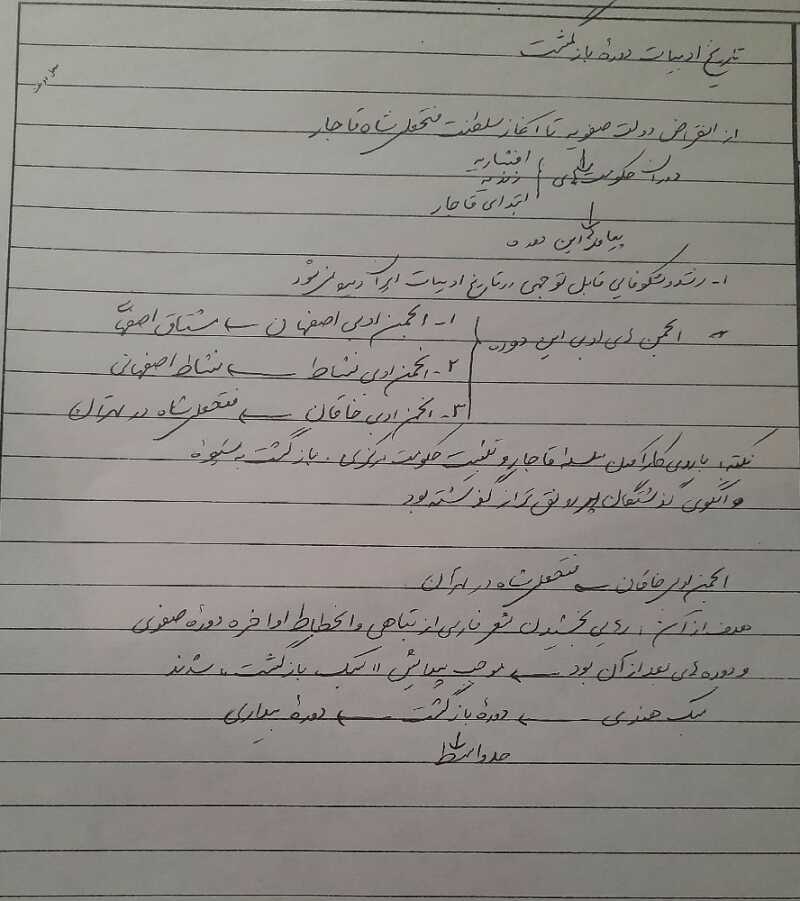 تاریخ ادبیات دورهٔ بازگشت
از انقراض دولت صفویه تا آغاز سلطنت فتحعلی شاه قاجار
دوران حکومت های { افشاریه
زندیه
ابتدای قاجار
پیامدهای این دوره
۱- رشد و شکوفایی قابل توجهی در تاریخ ادبیات ایران دیده نمی شود
* انجمن های ادبی این دوره { ۱- انجمن ادبی اصفهان ← مشتاق اصفهانی
۲- انجمن ادبی نشاط ← نشاط اصفهانی
۳- انجمن ادبی خاقان ← فتحعلی شاه در تهران
نکته: با روی کار آمدن سلسله قاجار و تثبیت حکومت مرکزی، بازگشت به شیوهٔ
و الگوی گذشتگان پر رونق تر از گذشته بود
انجمن ادبی خاقان ← فتحعلی شاه در تهران
هدف از آن: رهایی بخشیدن شعر فارسی از تباهی و انحطاط اواخر دورهٔ صفوی
و دوره های بعد از آن بود ← موجب پیدایش "سبک بازگشت" شدند
سبک هندی ← دورهٔ بازگشت ← دورهٔ بیداری
حد واسط